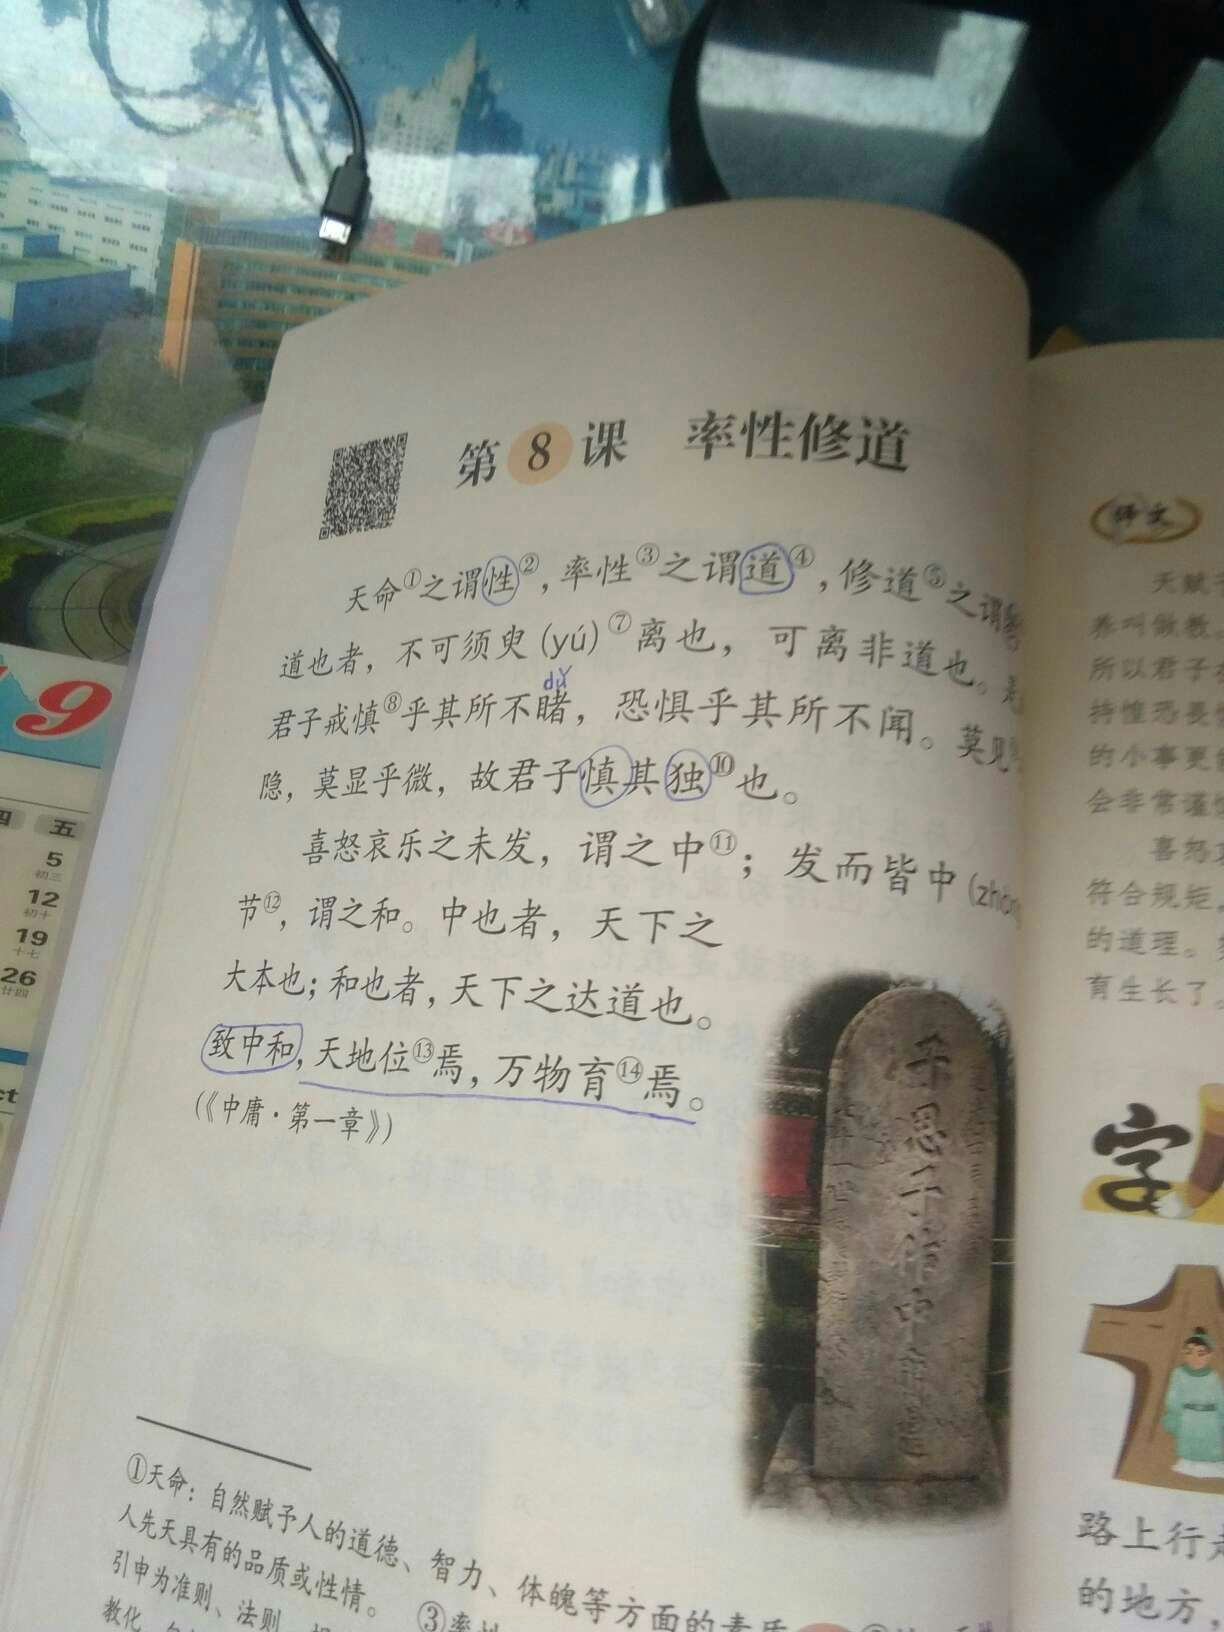 第8课 率性修道
天命①之谓性②,率性③之谓道④,修道⑤之谓
道也者,不可须臾(yú)⑦离也,可离非道也。是
dǔ
君子戒慎⑧乎其所不睹,恐惧乎其所不闻。莫见
隐,莫显乎微,故君子慎其独⑩也。
喜怒哀乐之未发,谓之中⑪;发而皆中(zhòn
节⑫,谓之和。中也者,天下之
大本也;和也者,天下之达道也。
致中和,天地位⑬焉,万物育⑭焉。
(《中庸·第一章》)
子思子作中庸
①天命:自然赋予人的道德、智力、体魄等方面的素质
人先天具有的品质或性情。 ③率性
引申为准则、法则
教化
译文
天赋予
养叫做教。
所以君子
持惶恐畏惧
的小事更
会非常谨慎
喜怒
符合规矩,
的道理。
有生长了。
字
路上行走
的地方,
9
四 五
5
初三
12
初十
19
十七
26
廿四
ct